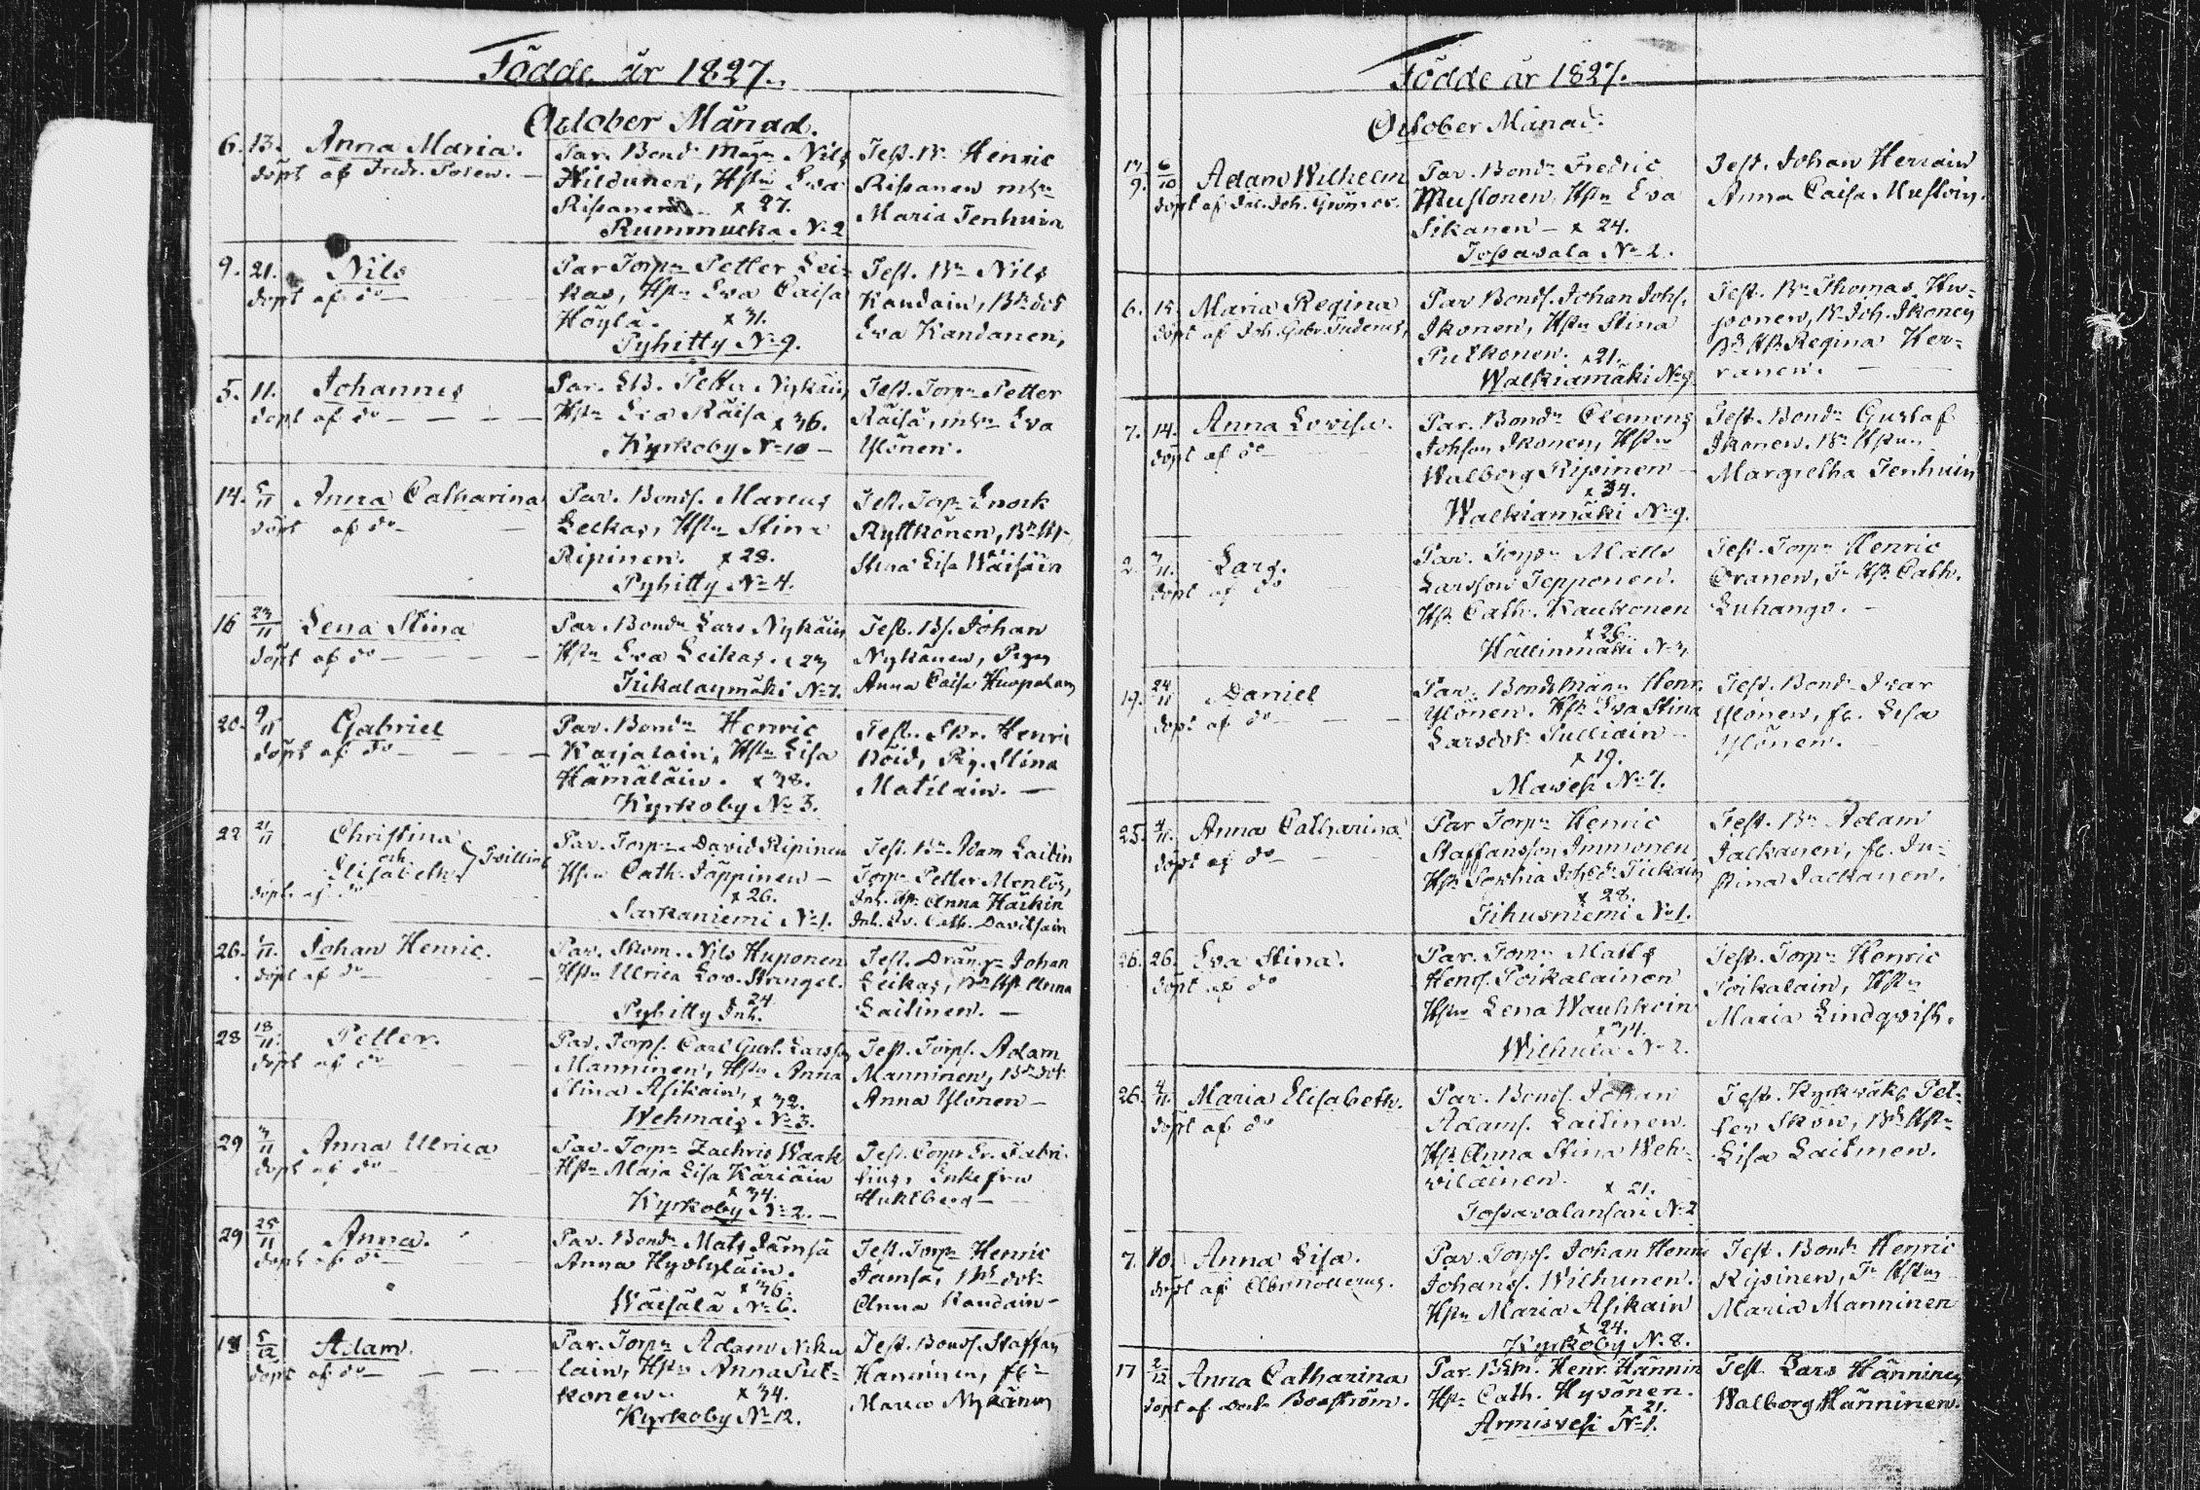 Födde år 1827.
October Månad.
6. 13. Anna Maria.
döpt af Fredr. Polen.
Par. Bond. Mågn Nils
Hildunen, Hstn Eva
Rissanen x 27.
Rummucka No 2
Test. Bn Henric
Rissanen m hn
Maria Tenhuin
9. 21. Nils
döpt af do
Par Torpn Petter Lei-
kas, Hstn Eva Caisa
Höylä. x 31.
Pyhitty No 9.
Test. Bn Nils
Kandain, Bdedot
Eva Kandanen,
5. 11. Johannes
döpt af do
Par. Petter Nykäin
Hstn Eva Räisä x 36.
Kyrkoby No 10
Test. Torpn Petter
Räisä, m hn Eva
Ylönen.
14. 5/11 Anna Catharina
döpt af do
Par. Bonds. Marcus
Leikas, Hstn Stina
Ripinen. x 28.
Pyhitty No 4.
Test. Torpn Enock
Ryttkönen, Bn Hst
Stina Lisa Wäisäin
16 23/11 Lena Stina
döpt af do
Par. Bondn Lars Nykäin
Hstn Eva Leikas. x 23
Tickalaxmäki No 7.
Test. Bs. Johan
Nykänen, Pign
Anna Caisa Huopalain
20. 9/11 Gabriel
döpt af do
Par. Bondn Henric
Karjalain, Hstn Lisa
Hämäläin. x 38.
Kyrkoby No 3.
Test. Skr. Henric
Röid, Pig. Stina
Matilain.
22 21/11 Christina
och
Elisabeth } Tvilling
döpt af do
Par. Torpn David Ripinen
Hstn Cath. Jäppinen
x 26.
Sarkaniemi No 1.
Test. Bn Adam Laitin
Torpn Petter Menlös,
Inh. Hst. Anna Häikin
Inh. Cath. Davitsain
26. 1/11. Johan Henric.
döpt af do
Par. Skom. Nils Huponen
Hstn Ulrica Lov. Strangel.
24
Pyhitty Inh.
Test. Drängn Johan
Leikas, Bd Hst Anna
Laitinen.
28 18/11. Petter.
döpt af do
Par. Torps. Carl Gust. Larsson
Manninen, Hstn Anna
Stina Asikain, x 32.
Wehmais No 3.
Test. Torps. Adam
Manninen, Bdedot
Anna Ylönen
29 3/11 Anna Ulrica
döpt af do
Par. Torpn Zachris Waak
Hstn Maja Lisa Käriäin
x 34.
Kyrkoby No 2.
Test. Fabri-
cius, Enkefru
Hultberg
29 25/11 Anna.
döpt af do
Par. Bondn Mats Jämsä
Anna Hyvlyläin.
x 36.
Wäisälä No 6.
Test. Torpn Henric
Jämsä, Bd dot
Anna Kandain
18 5/12 Adam.
döpt af do
Par. Torpn Adam Niku-
lain, Hstn Anna Put-
konen x 34.
Kyrkoby No 12.
Test. Bonds. Staffan
Hänninen,
Maria Nykänen
Födde år 1827.
October Månad.
17/9. 6/10 Adam Wilhelm
döpt af
Par. Bondn Fredric
Mustonen, Hstn Eva
Sikanen x 24.
Tossavala No 2.
Test. Johan Herrain
Anna Caisa Mustoin.
6. 15. Maria Regina
döpt af Joh. Gabr.
Par Bonds. Johan Johs.
Ikonen, Hstn Stina
Putkonen. x 21.
Walkiamäki No 9
Test. Bn Thomas Hu-
ponen, Bs Joh. Ikonen
Bd Hst Regina Her-
ranen.
7. 14. Anna Lovisa.
döpt af do
Par. Bondn Clemens
Johsson Ikonen, Hstn
Walborg Ripinen
x 34.
Walkiamäki No 9.
Test. Bondn Gustaf
Ikonen, Bn Hstn
Margretha Tenhuin
2. 7/11. Lars.
döpt af do
Par. Torpn Matts
Larsson Tepponen.
Hst. Cath. Kaukonen
x 26.
Hällinmäki No 3
Test. Torpn Henric
Oranen, Tn Hst Cath.
Luhango.
19. 24/11 Daniel
döpt af do
Par. Bonds Henr.
Ylönen. Hst Eva Stina
Larsdotr Sulliain
x 19.
Mavesi No 7.
Test. Bond. Ivar
Ylönen, fl. Lisa
Ylönen.
25. 4/11. Anna Catharina
döpt af do
Par Torpn Henric
Staffansson Immonen,
Hst Sophia Johsdr Tickain
x 28.
Tihusniemi No 1.
Test. Bn Adam
Jalkanen, fl. Ju-
stina Jalkanen.
26. 26. Eva Stina.
döpt af do
Par. Torpn Matts
Hens. Poikalainen
Hstn Lena Wauhkoin
x 34.
Wilhula No 2.
Test. Torpn Henric
Poikalain, Hstn
Maria Lindqvist.
26. 4/11. Maria Elisabeth.
döpt af do
Par. Bonds. Johan
Adams. Laitinen.
Hst Anna Stina Weh-
viläinen. x 21.
Tossavalansari No 2
Test. Kyrkväkt Pet-
ter Skön, Bd Hstn
Lisa Laitinen.
7. 10. Anna Lisa.
döpt af
Par. Torps. Johan Henric
Johans. Wilhunen.
Hstn Maria Asikain
x 24.
Kyrkoby No 8.
Test. Bondn Henric
Ripinen, Tn Hstn
Maria Manninen
17 2/12 Anna Catharina
döpt af Boström.
Par. Bdm. Henr. Hännin
Hstn Cath. Hyvönen.
x 21.
Armisvesi No 1.
Test Lars Hänninen
Walborg Hänninen.